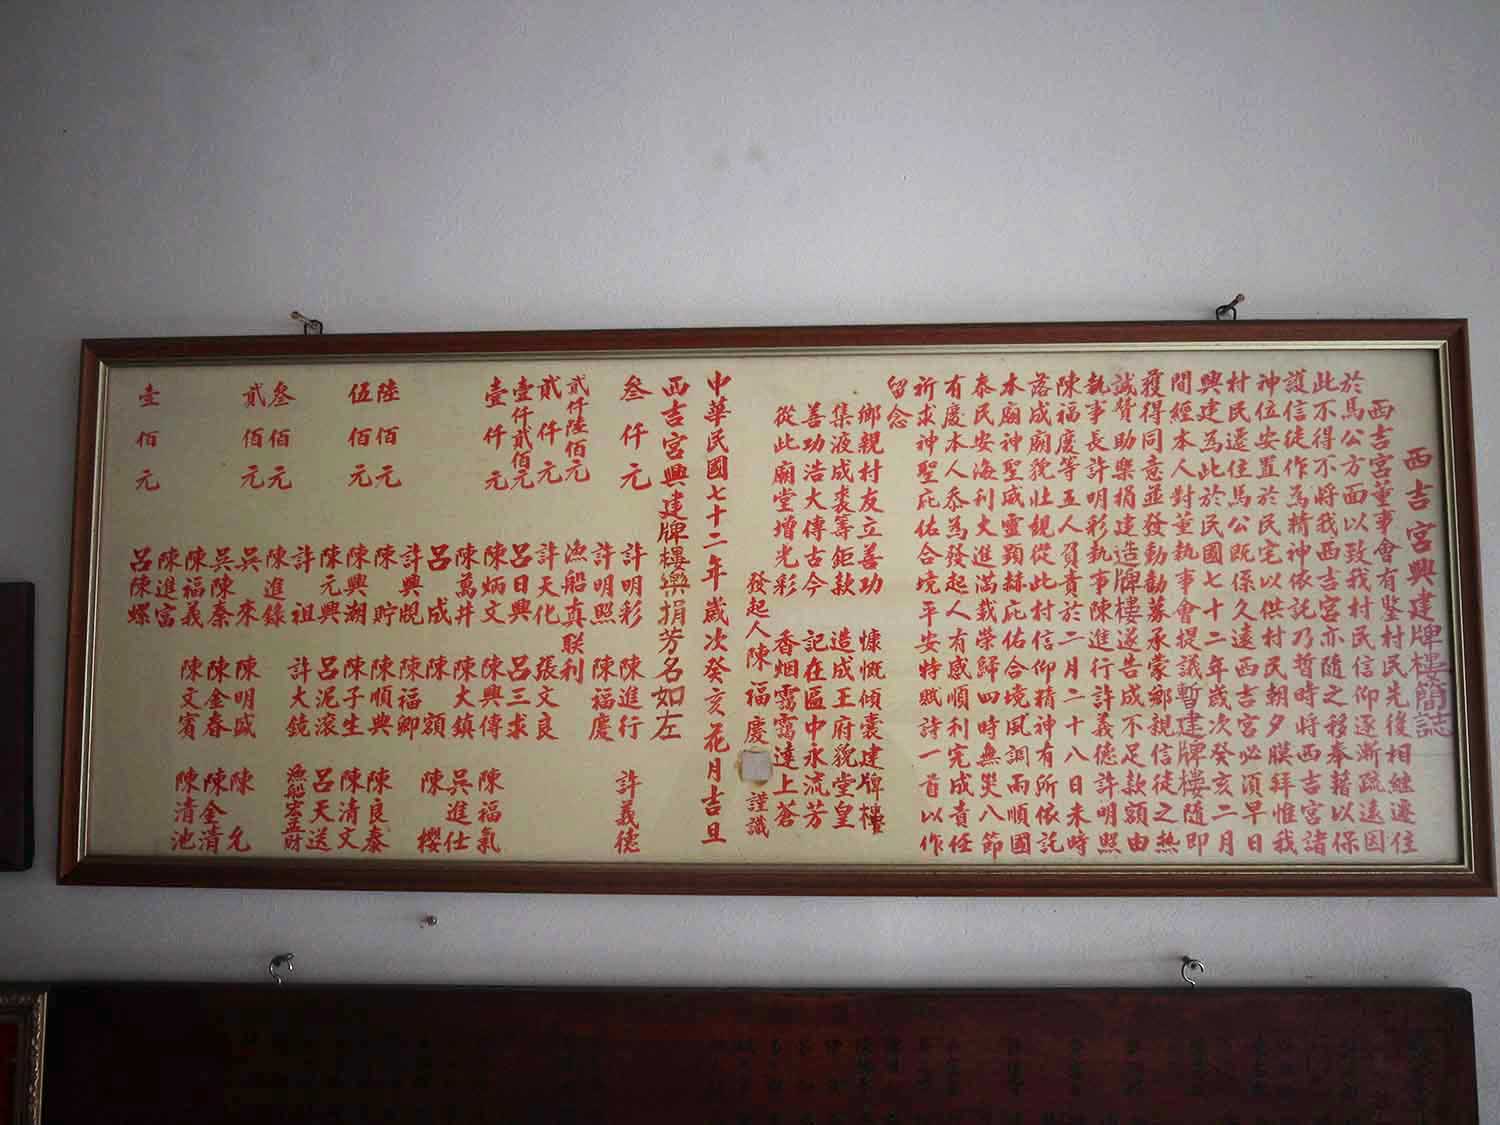 西吉宮興建牌樓簡誌
西吉宮董事會有鑒村民先後相繼遷住
於馬公方面以致我村民信仰逐漸疏遠因
此不得不將我西吉宮亦隨之移奉藉以保
護信徒作為精神依託乃暫時將西吉宮諸
神位安置於民宅以供村民朝夕膜拜惟我
村民還住馬公既係久遠西吉宮必須早日
興建為此於民國七十二年歲次癸亥二月
間經本人對董執事會提議暫建牌樓隨即
獲得同意並發動勸募承蒙鄉親信徒之熱
誠贊助樂捐建造牌樓遂告成不足款額由
執事長許明彩執事陳進行許義德許明照
陳福慶等五人負責於二月二十八日未時
落成廟貌壯觀從此村信仰精神有所依託
本廟神聖威靈顯赫庇佑合境風調雨順國
泰民安海利大進滿載榮歸四時無災八節
有慶本人忝為發起人有感順利完成責任
祈求神聖庇佑合境平安特賦詩一首以作
留念
鄉親村友立善功 慷慨傾囊建牌樓
集液成裘籌鉅款 造成王府貌堂皇
善功浩大傳古今 記在區中永流芳
從此廟堂增光彩 香烟靄靄達上蒼
發起人陳福慶 謹識
中華民國七十二年歲次癸亥花月吉旦
西吉宮興建牌樓樂捐芳名如左
叁仟元 許明彩 陳進行 許義德
許明照 陳福慶
貳仟陸佰元 漁船真聯利
貳仟元 許天化 張文良
壹仟貳佰元 呂日興 呂三求
壹仟元 陳炳文 陳興傳 陳福氣
陳萬井 陳大鎮 吳進仕
呂成 陳額 陳櫻
許興覕 陳福卿
陸佰元 陳貯 陳順興 陳良泰
伍佰元 陳興湖 陳子生 陳清文
陳元興 呂泥滾 呂天送
許祖 許大鏡 漁船宏益財
叁佰元 陳進錄
貳佰元 吳來 陳明盛 陳允
吳陳奏 陳金春 陳金清
陳福義 陳文賓 陳清池
陳進富
壹佰元 呂陳螺